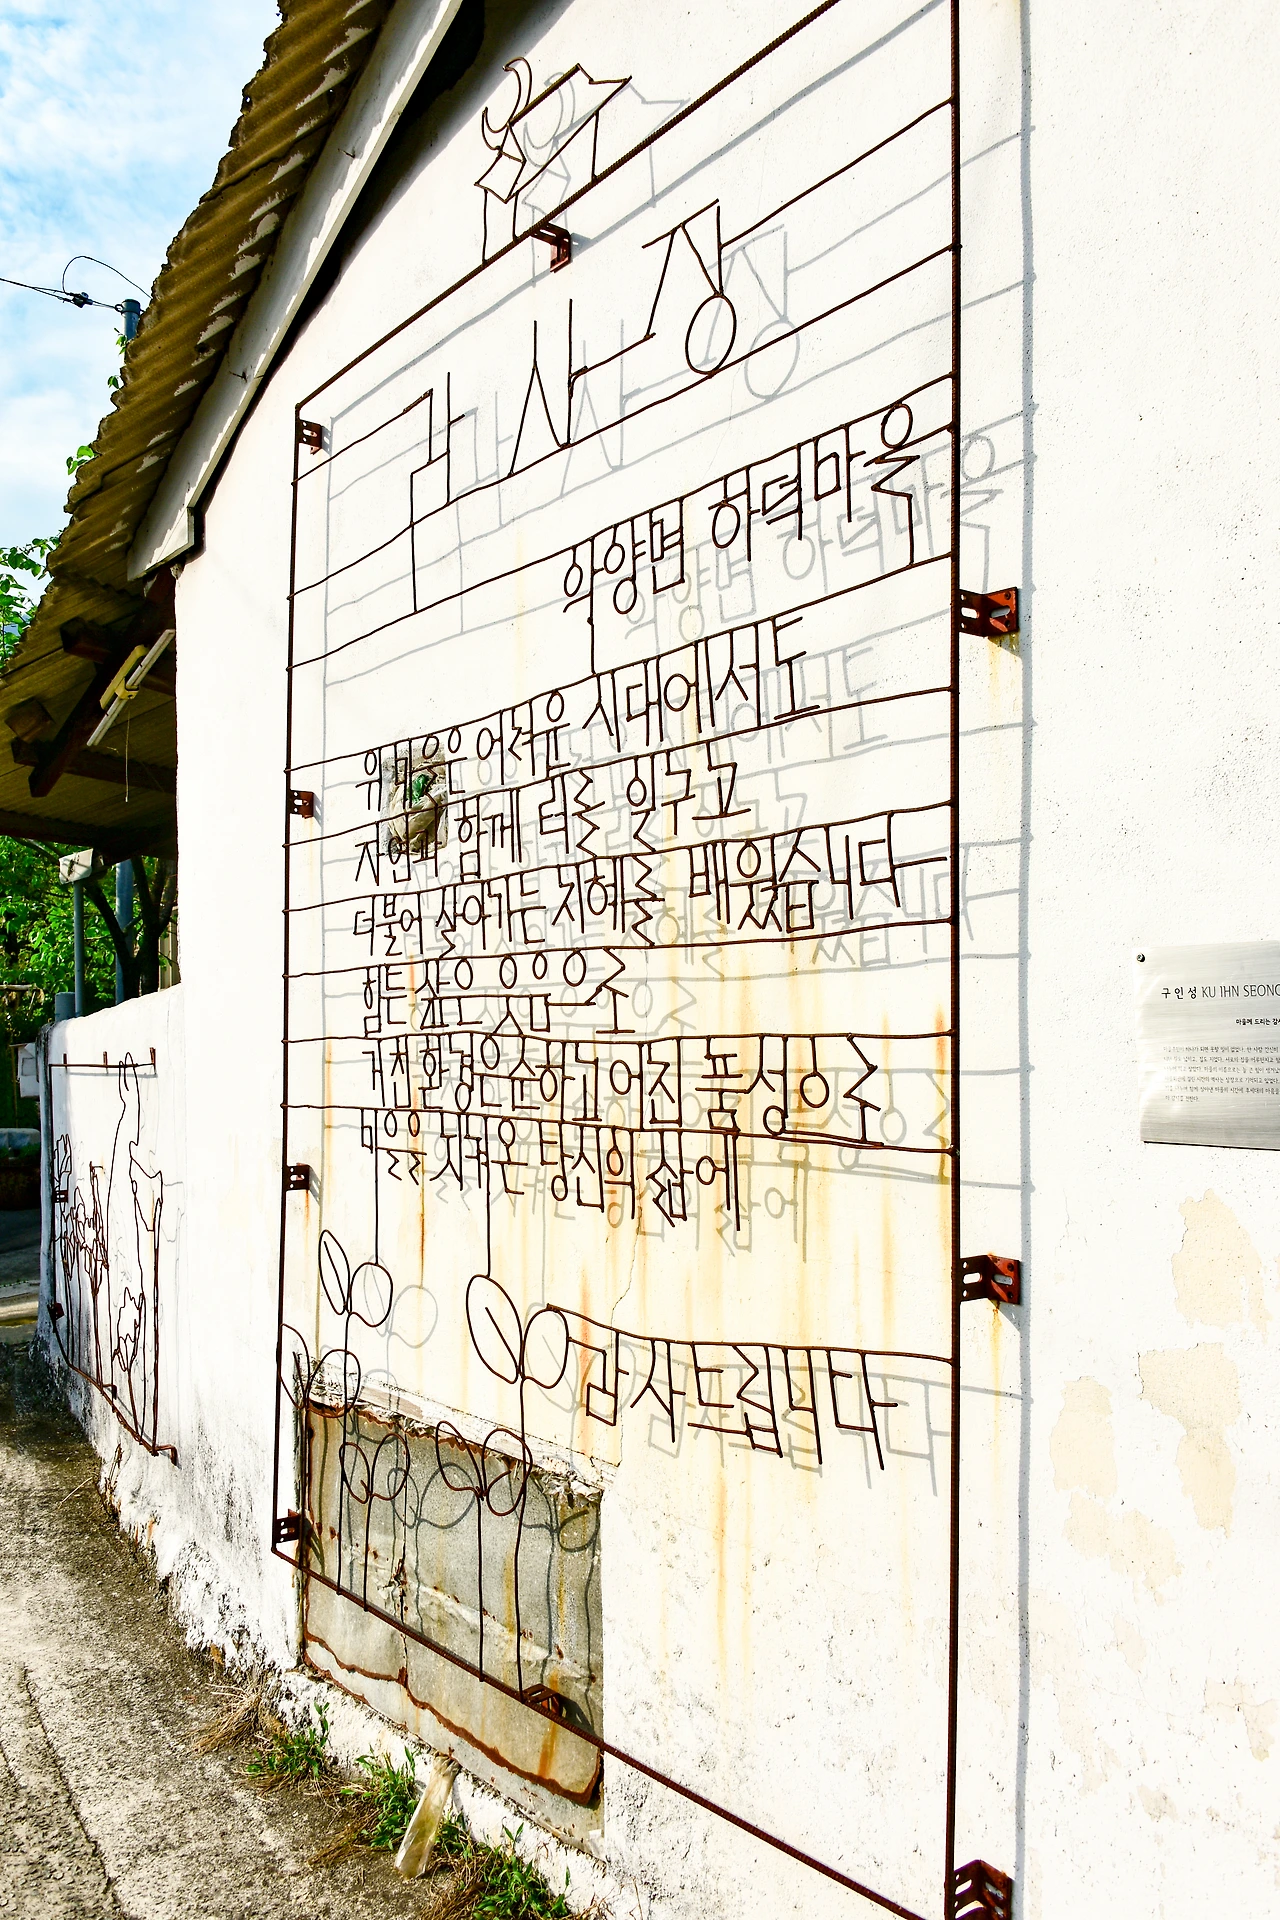 감사장
악양면 하덕마을
위 마을은 어려운 시대에서도
자연과 함께 터를 일구고
더불어 살아가는 지혜를 배웠습니다
힘든 삶은 웃음으로
거친 환경은 순하고 어진 품성으로
마을을 지켜온 당신의 삶에
감사드립니다
구인성 KU IHN SEONG
마을께 드리는 감사